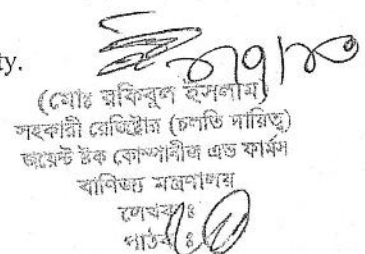 ty.
(মোঃ রকিবুল ইসলাম)
সহকারী রেজিষ্ট্রার (চলতি দায়িত্ব)
জয়েন্ট ষ্টক কোম্পানীজ এন্ড ফার্মস
বাণিজ্য মন্ত্রণালয়
লেখকঃ
পাঠকঃ